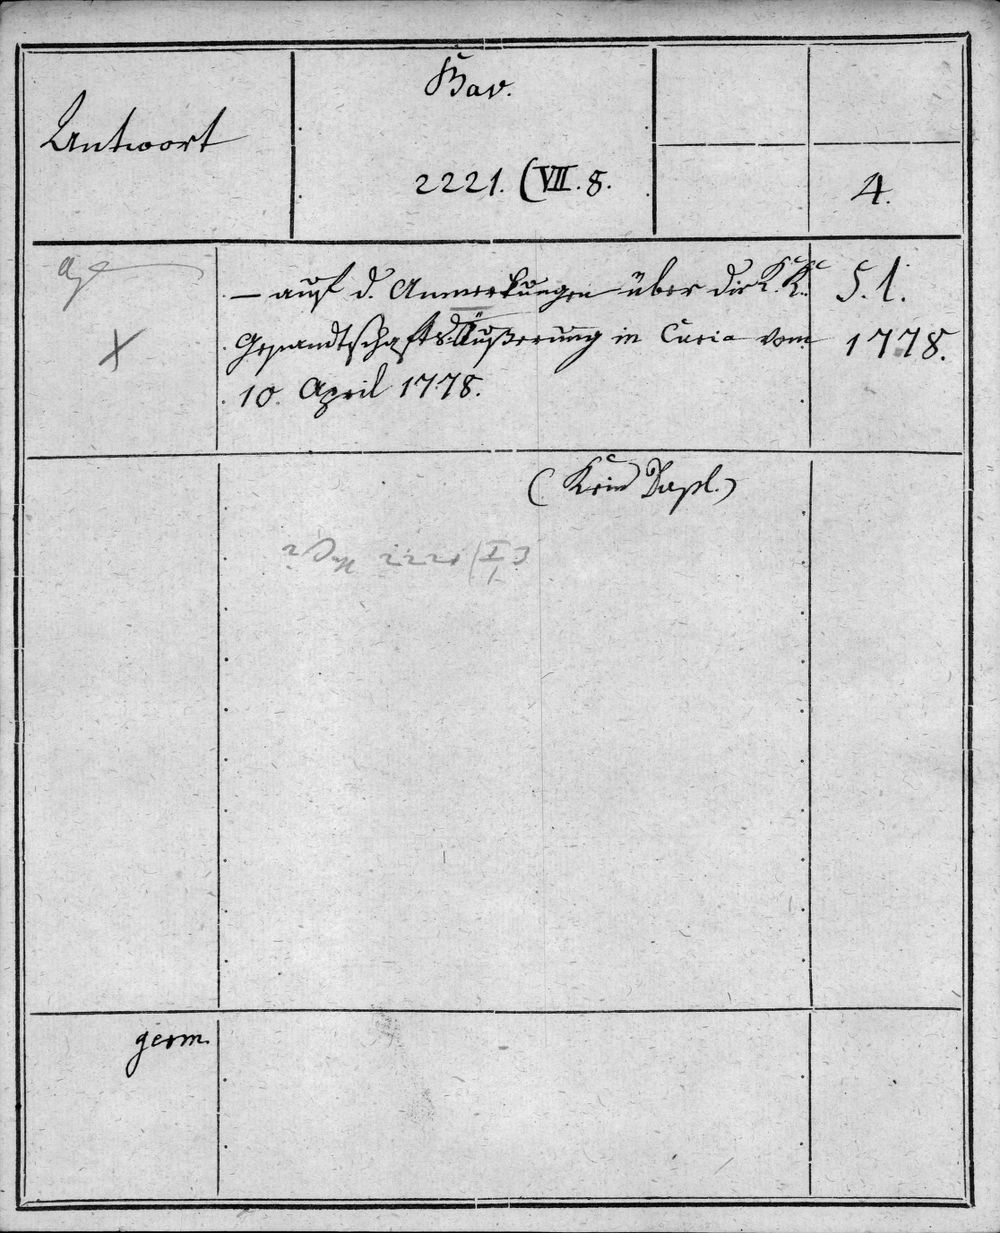 Antwort
Bav.
2221. (VII.8.
4.
— auf d. Anmerkungen über die K. K.
Gesandtschafts-Äußerung in Curia vom
10. April 1778.
S. l.
1778.
(Kein Dupl.)
2221 (I 3
germ.